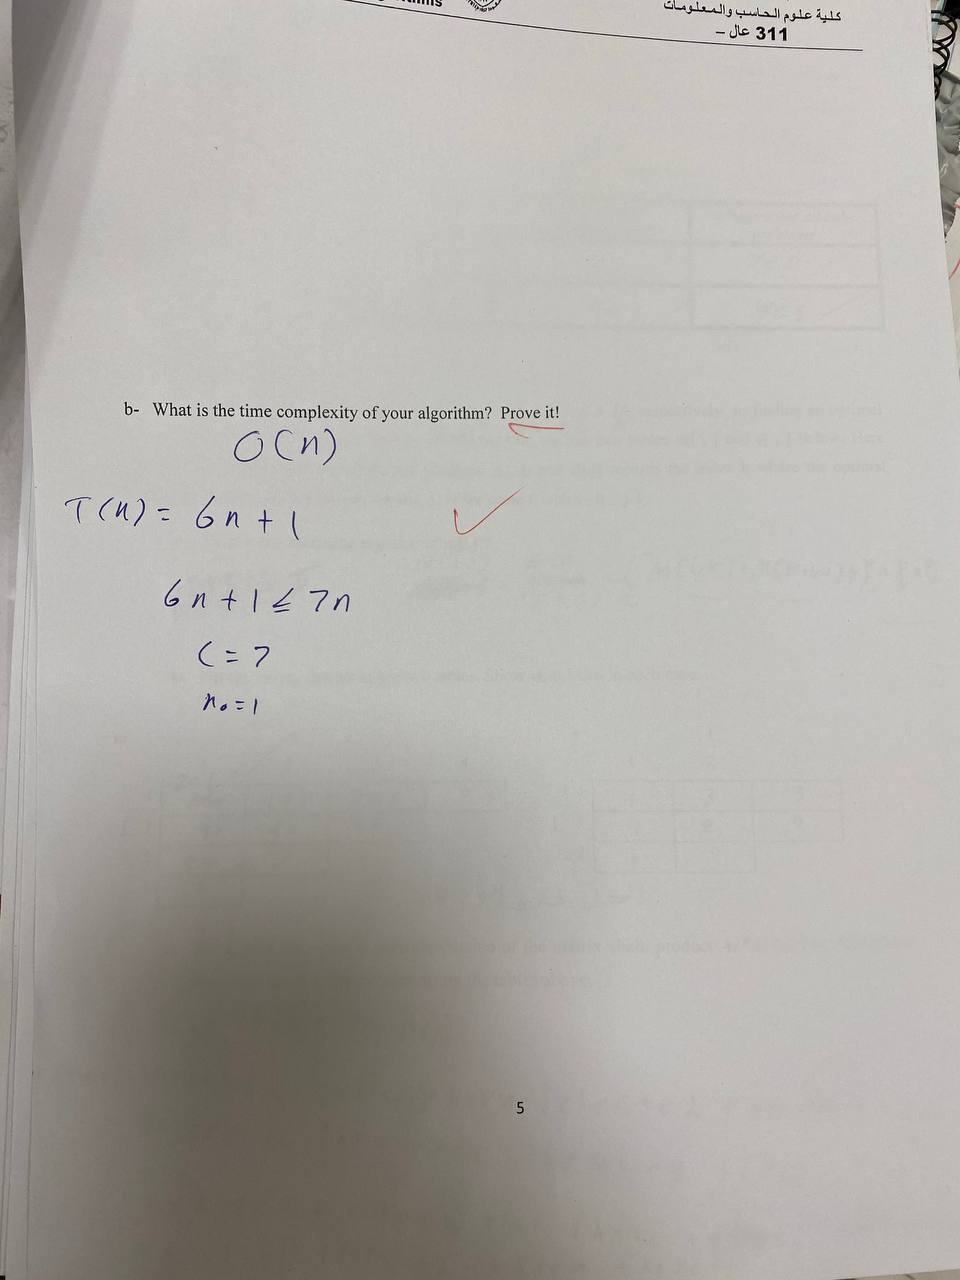 كلية علوم الحاسب والمعلومات
311 عال –
b- What is the time complexity of your algorithm? Prove it!
O(n)
T(n) = 6n + 1
6n + 1 ≤ 7n
C = 7
n₀ = 1
5